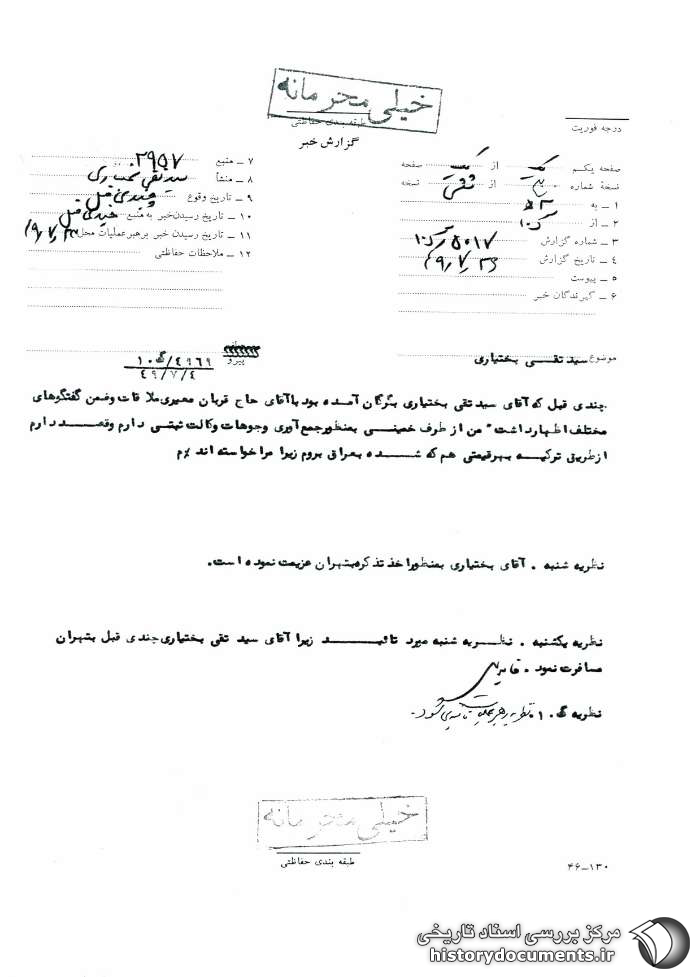 خیلی محرمانه
طبقه بندی حفاظتی
گزارش خبر
درجه فوریت
صفحه یکم یک از یک صفحه
نسخهٔ شماره از نسخه
۱ ـ به
۲ ـ از
۳ ـ شماره گزارش
٤ ـ تاریخ گزارش
۵ ـ پیوست
۶ ـ گیرندگان خبر
۷ ـ منبع ۲۹۵۷
۸ ـ منشأ سید تقی بختیاری
۹ ـ تاریخ وقوع چندی قبل
۱۰ ـ تاریخ رسیدن خبر به منبع چندی قبل
۱۱ ـ تاریخ رسیدن خبر برهبر عملیات محل
۱۲ ـ ملاحظات حفاظتی
موضوع سید تقی بختیاری
پیرو ٤۹۶۹/ﮬ ۱۰
٤۹/۷/٤
چندی قبل که آقای سید تقی بختیاری بگرگان آمده بود با آقای حاج قربان معیری ملاقات وضمن گفتگوهای
مختلف اظهارداشت" من از طرف خمینی بمنظور جمع آوری وجوهات وکالت ثبتی دارم وقصد دارم
ازطریق ترکیه بهرقیمتی هم که شده بعراق بروم زیرا مرا خواسته اند
نظریه شنبه . آقای بختیاری بمنظور اخذ تذکره بتهران عزیمت نموده است.
نظریه یکشنبه . نظریه شنبه مورد تائید زیرا آقای سید تقی بختیاری چندی قبل بتهران
مسافرت نمود .
نظریه ۱۰ . نظریه رهبر عملیات تائید می شود.
خیلی محرمانه
طبقه بندی حفاظتی
۴۶-۱۳۰
مرکز بررسی اسناد تاریخی
historydocuments.ir